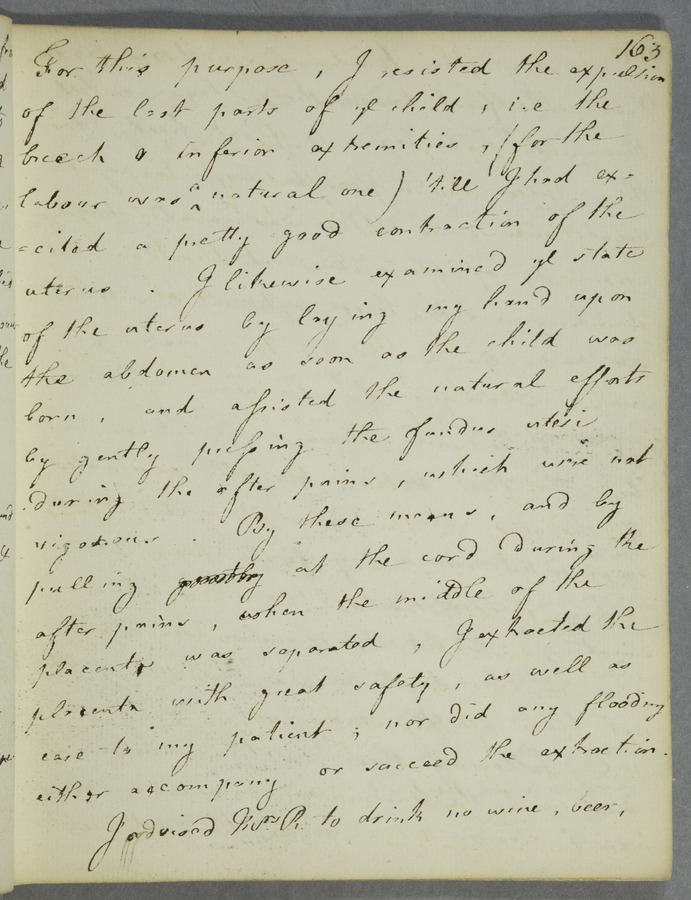 163
For this purpose, I resisted the expulsion
of the last parts of ye child, i.e the
breech & inferior extremities, (for the
labour was a natural one) 'till I had ex=
=cited a pretty good contraction of the
uterus. I likewise examined ye state
of the uterus by laying my hand upon
the abdomen as soon as the child was
born, and assisted the natural efforts
by gently pressing the fundus uteri
during the after pains, which were not
vigorous. By these means, and by
pulling at the cord during the
after pains, when the middle of the
placenta was separated, I extracted the
placenta with great safety, as well as
ease to my patient; nor did any flooding
either accompany or succeed the extraction.
I advised Mrs. P. to drink no wine, beer,